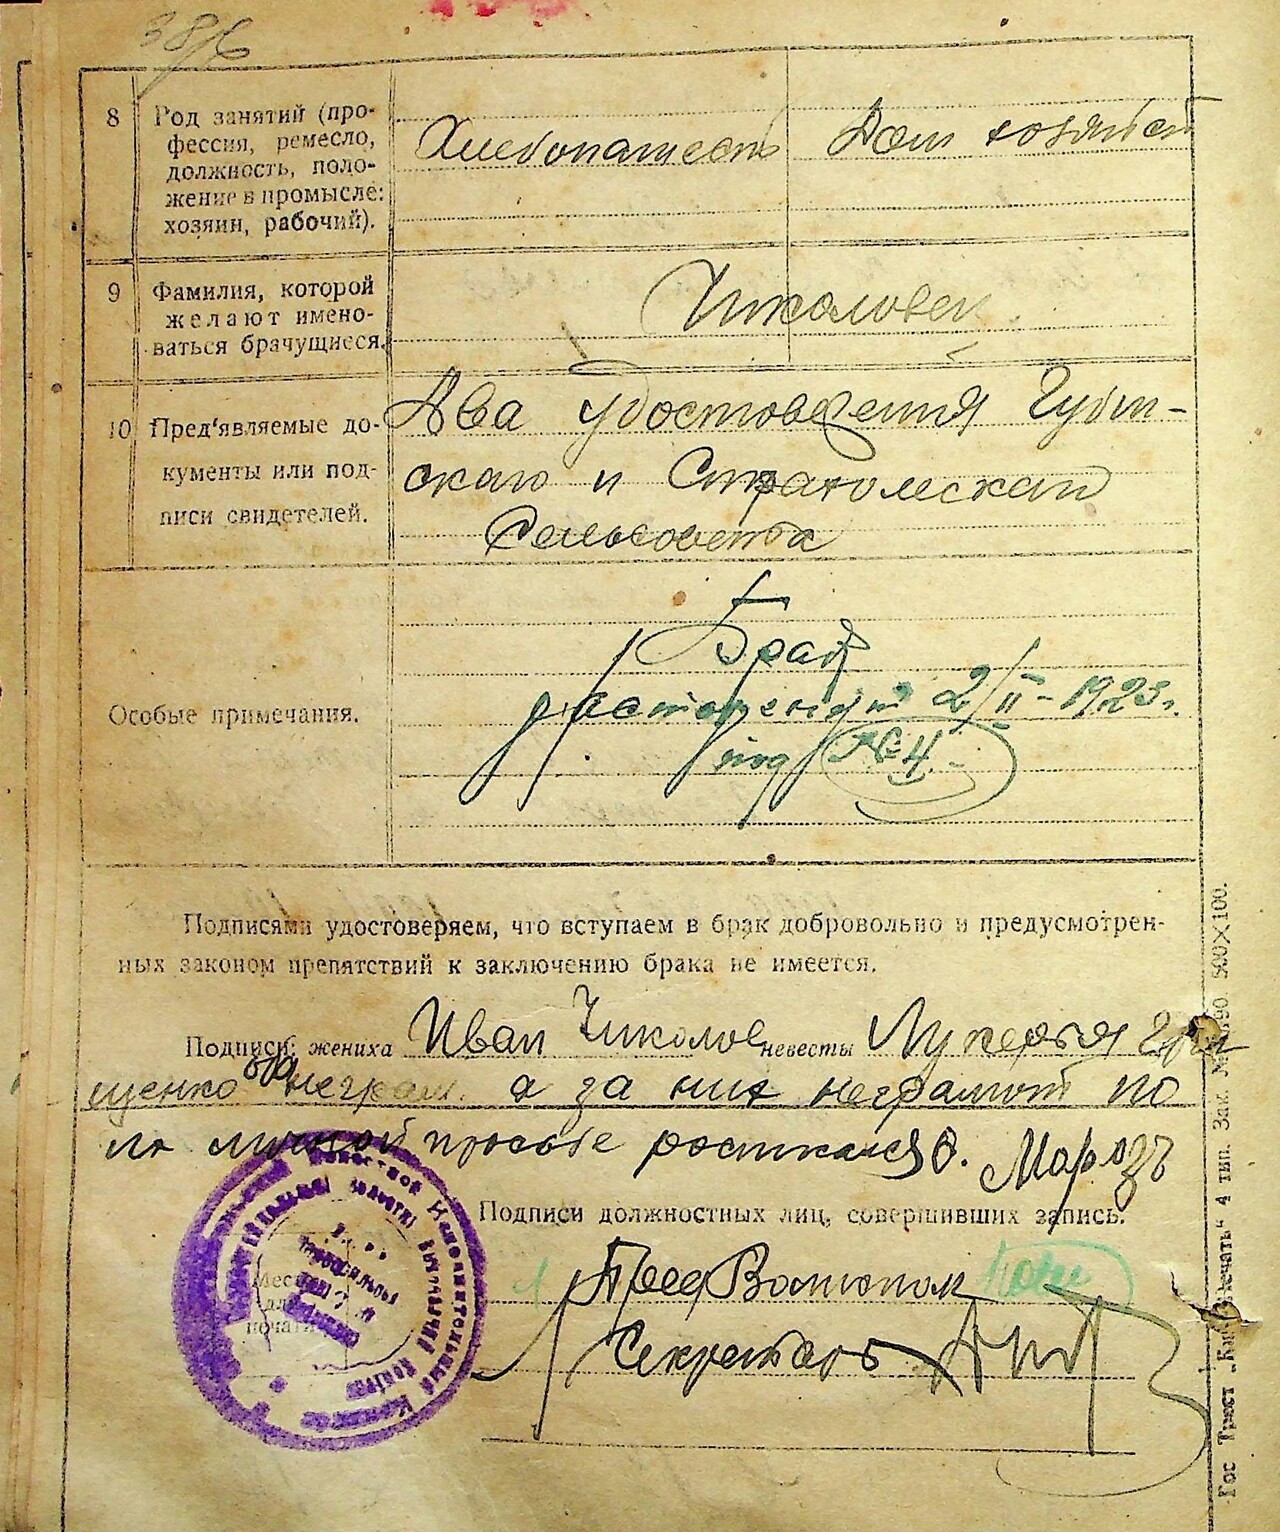 38/6
8 Род занятий (про-
фессия, ремесло,
должность, поло-
жение в промысле:
хозяин, рабочий).
Хлебопашест Дом хозяйст
9 Фамилия, которой
желают имено-
ваться брачущиеся.
Чиколовец
10 Пред'являемые до-
кументы или под-
писи свидетелей.
Два удостоверения
скаго и
Сельсовета
Особые примечания.
Брак
расторгнут 2/II-1923г.
под № 4.
Подписями удостоверяем, что вступаем в брак добровольно и предусмотрен-
ных законом препятствий к заключению брака не имеется.
Подписи: жениха Иван Чиколовец невесты Лукерья Гри
щенко оба неграм. а за них неграмот по
их личной просьбе росписался В. Марозъ
Подписи должностных лиц, совершивших запись.
Место
для
печати
Пред Волисполкома
Секретарь
Гос Трест „Киев-Печать“ 4 тип. Зак. 500×100.